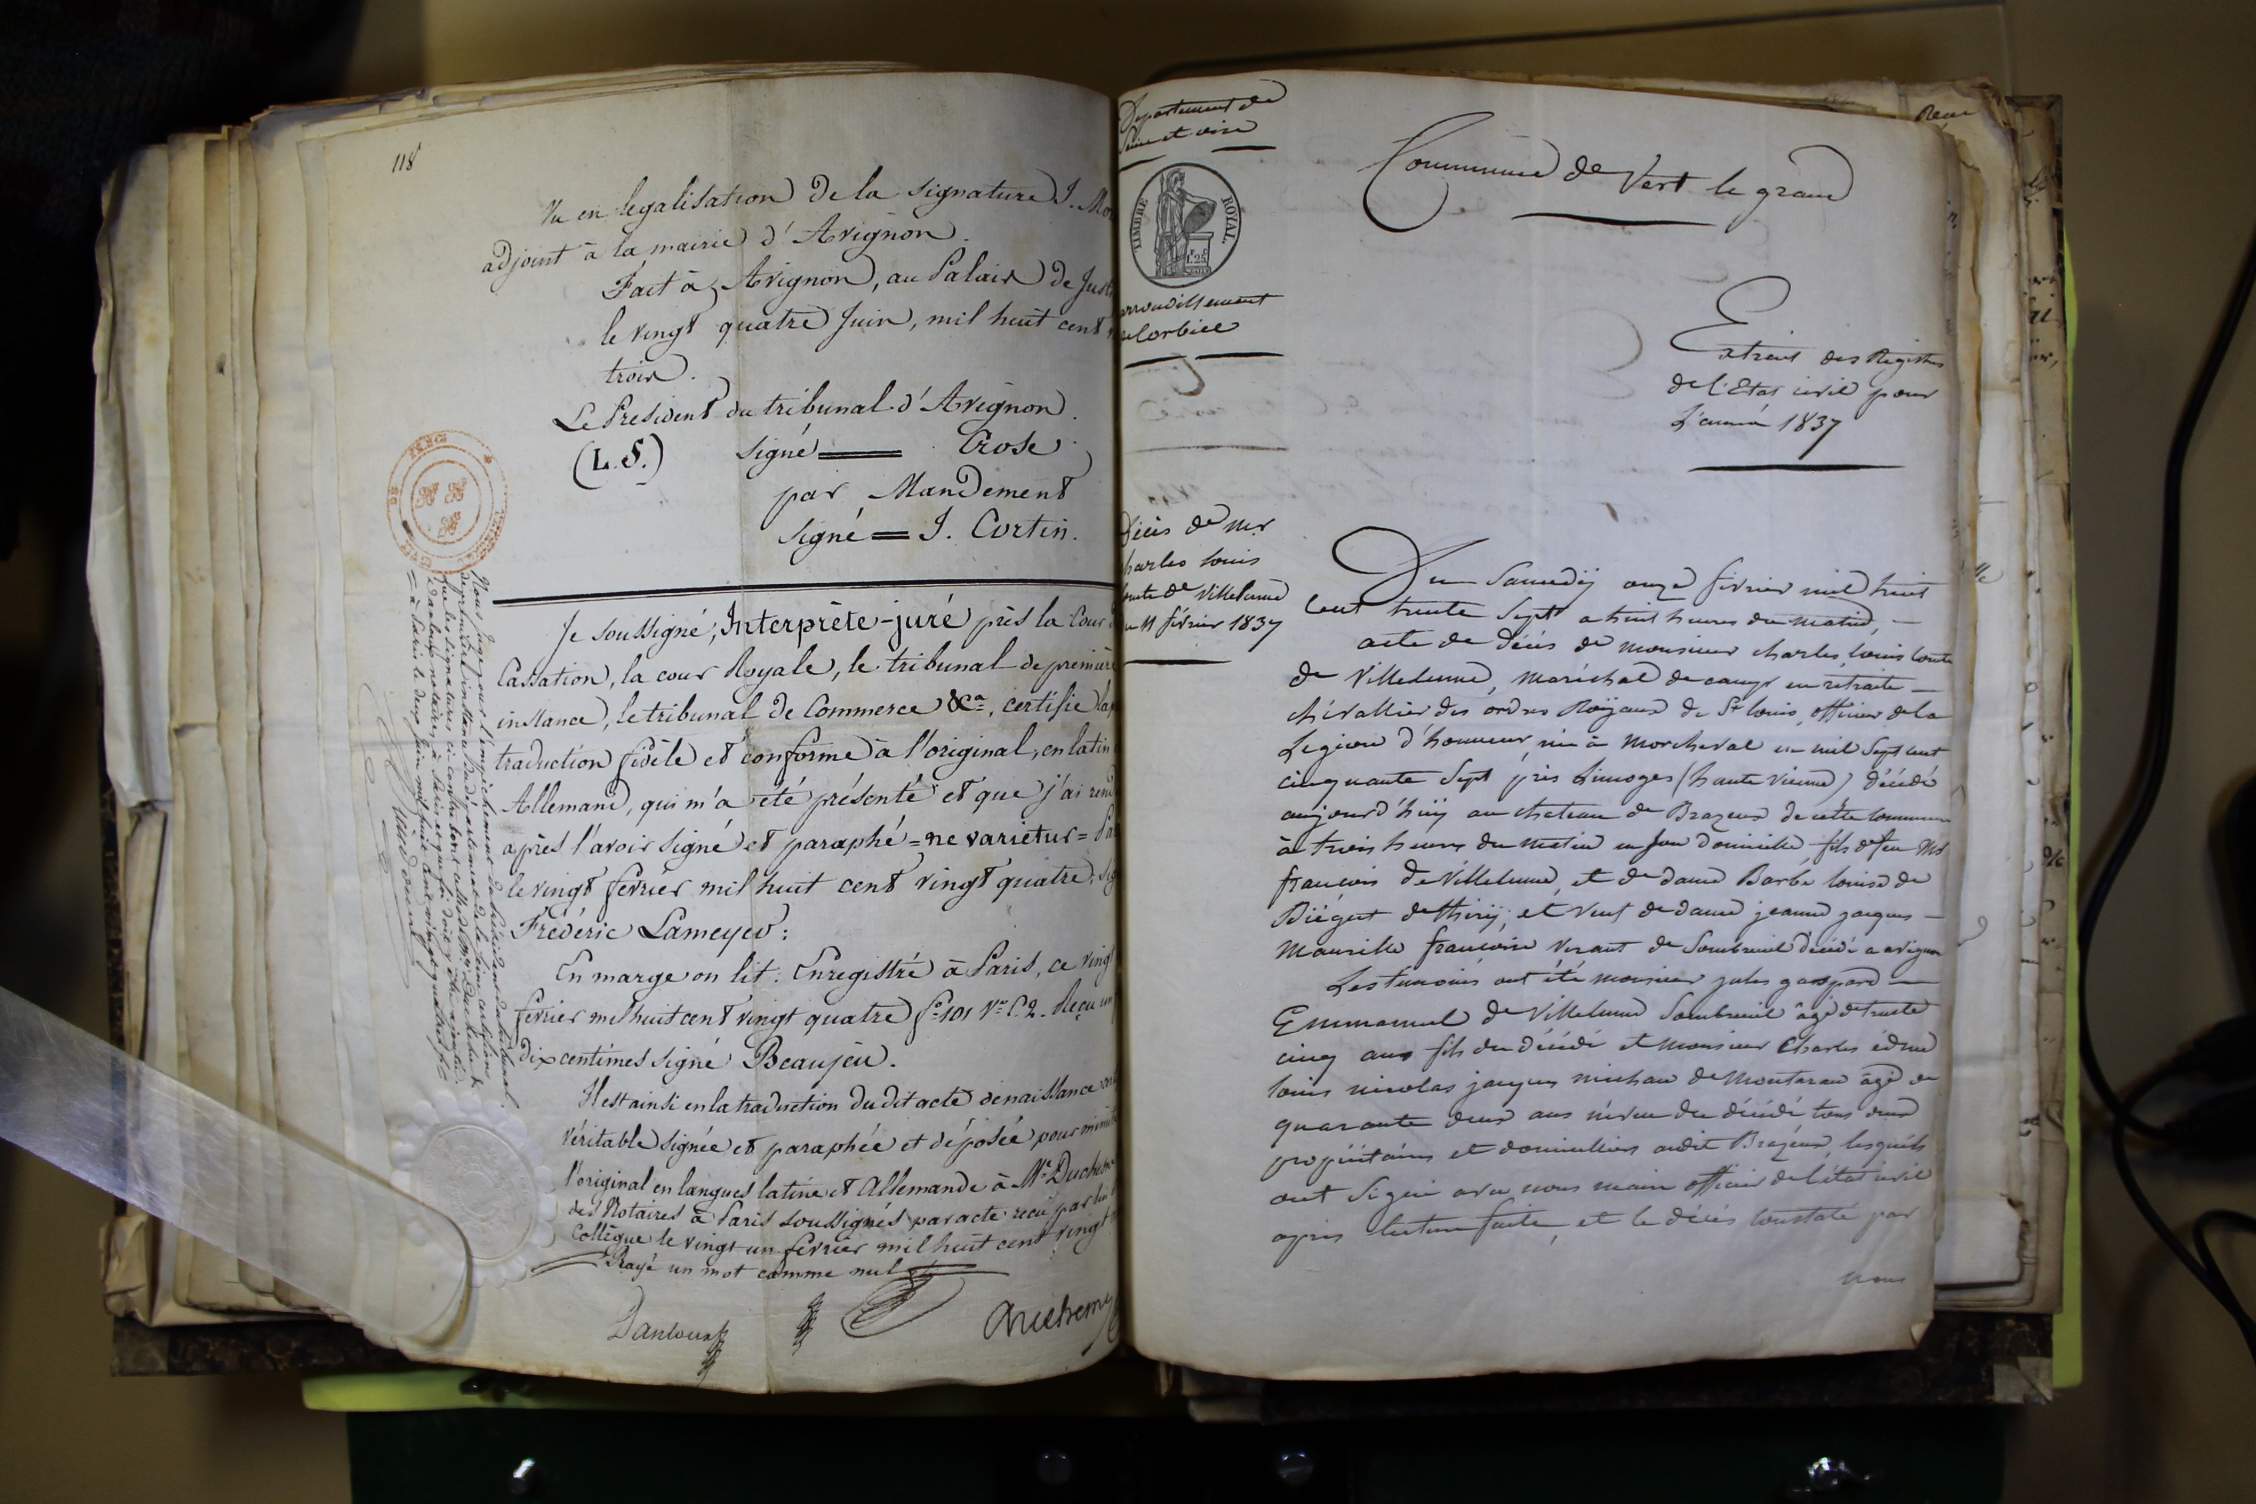 118
Vu en legalisation de la signature J. Mo
adjoint à la mairie d'Avignon.
Fait à Avignon, au Palais de Just
le vingt quatre Juin, mil huit cent
trois.
Le Président du tribunal d'Avignon.
(L.S.) signé Crose
par Mandement
signé = J. Curtin.
Je soussigné, Interprète-juré près la Cour
Cassation, la cour Royale, le tribunal de première
instance, le tribunal de Commerce &ca, certifie la
traduction fidèle et conforme à l'original, en latin
Allemand, qui m'a été présenté et que j'ai rend
après l'avoir signé et paraphé = ne varietur = Pa
le vingt fevrier mil huit cent vingt quatre, sig
Frédéric Lameyer:
En marge on lit: Enregistré à Paris, ce vingt
fevrier mil huit cent vingt quatre fo 101 Vo C.2. Reçu un
dix centimes signé Beaujeu.
Il est ainsi en la traduction du dit acte de naissance
véritable signée et paraphée et déposée pour minut
l'original en langues latine et Allemande à Me Duchesne
des Notaires à Paris soussignés par acte reçu par lui
Collègue le vingt un fevrier mil huit cent vingt
Rayé un mot comme nul
Nous juge pour l'empêchement du Président du tribunal
de première instance du département de la Seine, certifions
que les signatures ci-contre sont celles de Mes Duchesne &
Danloux notaires à Paris et que foi doit y être ajoutée.
= à Paris le deux juin mil huit cent vingt quatre
Danloux
Duchesne
Departement de
Seine et oise
TIMBRE ROYAL
1.25
arrondissement
de Corbeil
Commune de Vert le grand
Extrait des Régistres
de l'Etat civil pour
L'année 1837
Décès de Mr
Charles Louis
comte de Villelume
du 11 février 1837
Du Samedÿ onze février mil huit
cent trente Sept a huit heures du matin, —
acte de décès de monsieur charles, louis comte
de Villelume, maréchal de camp en retraite —
chévallier des ordres Royaux de St louis, officier de la
Legion d'honneur, né à Morcheval en mil Sept cent
cinquante Sept près Limoges (haute Vienne) décédé
aujourd'huÿ au chateau de Brazeux de cette commune
à trois heures du matin en son domicile, fils de feu Mr
francois de Villelume, et de dame Barbe louise de
Diégert de thirÿ, et veuf de dame jeanne jacques —
Maurille francoise viraut de Sombreuil décédé a avignon
Les temoins ont été monsieur jules gaspard —
Emmanuel de Villelume Sombreuil âgé de trente
cinq ans fils du décédé et monsieur Charles édme
louis nicolas jacques michau de Montaran âgé de
quarante deux ans neveu du décédé tous deux
propriétaires et domiciliés audit Brazeux, lesquels
ont Signé avec nous maire officier de l'état civil
apris lecture faite, et le décès constaté par
nous